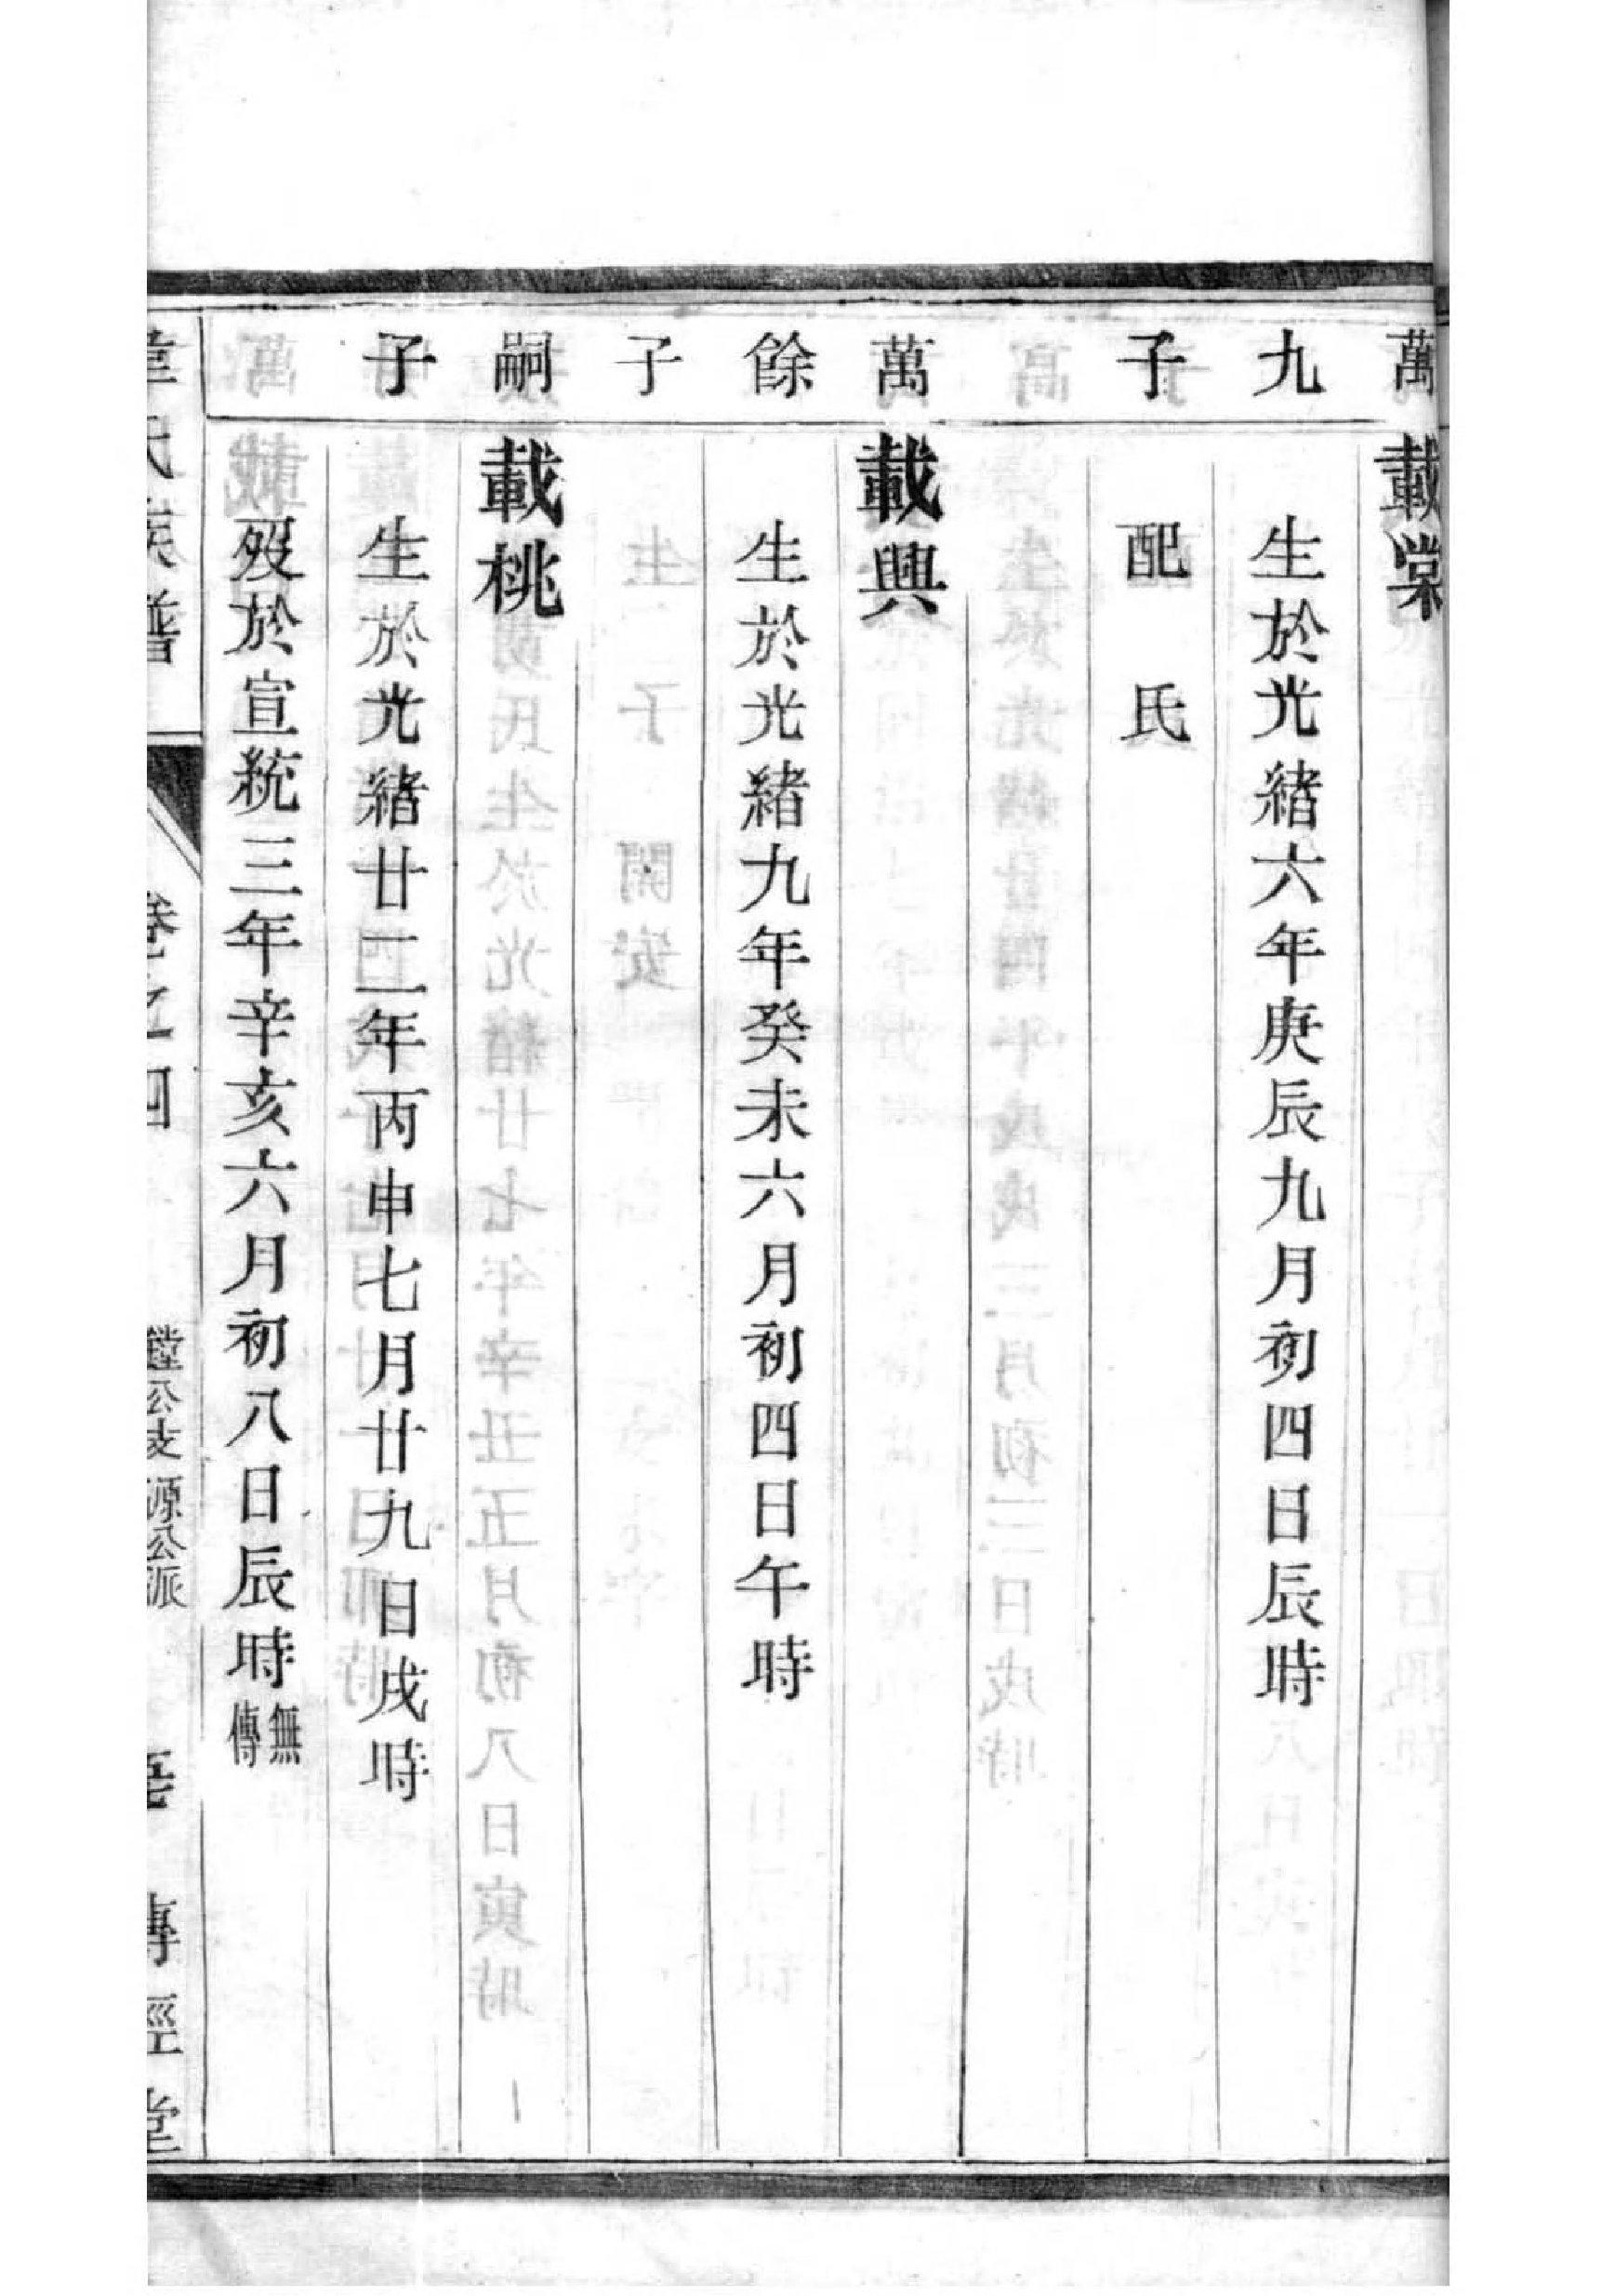 萬
載棠
九
生於光緒六年庚辰九月初四日辰時
子
配　氏
萬
載興
餘
生於光緒九年癸未六月初四日午時
子
嗣
載桃
子
生於光緒廿二年丙申七月廿九日戌時
歿於宣統三年辛亥六月初八日辰時無傳
韋氏族譜
卷之四
公支源公派
傳經堂